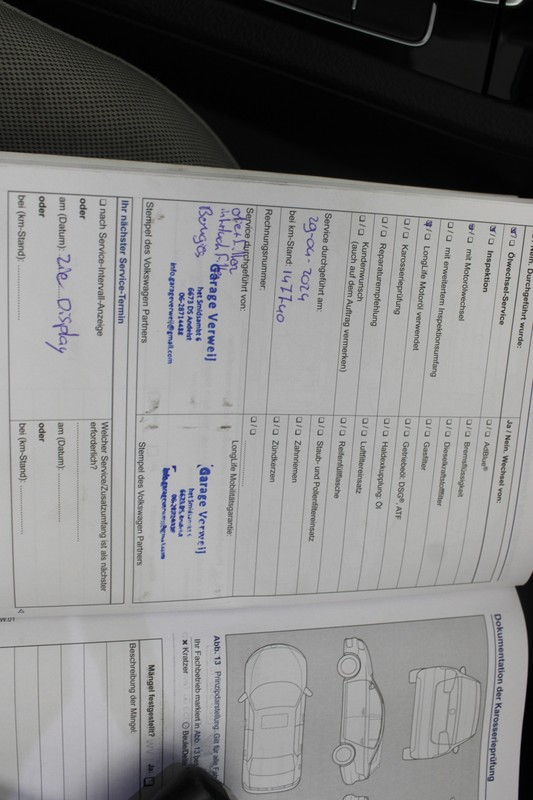 Durchgeführt wurde:
Ja / Nein. Wechsel von:
Ölwechsel-Service
Inspektion
mit Motorölwechsel
mit erweitertem Inspektionsumfang
LongLife Motoröl verwendet
Karosserieprüfung
Reparaturempfehlung
Kundenwunsch
(auch auf dem Auftrag vermerken)
Service durchgeführt am:
29-04-2024
bei km-Stand: 147740
Rechnungsnummer:
Service durchgeführt von:
Garage Verweij
het Smidsambt 6
6673 DS Andelst
06-28714438
info.garageverweij@gmail.com
Stempel des Volkswagen Partners
AdBlue®
Bremsflüssigkeit
Dieselkraftstofffilter
Gasfilter
Getriebeöl: DSG® ATF
Haldexkupplung: Öl
Luftfiltereinsatz
Reifenfüllflasche
Staub- und Pollenfiltereinsatz
Zahnriemen
Zündkerzen
LongLife Mobilitätsgarantie:
Garage Verweij
het Smidsambt 6
Stempel des Volkswagen Partners
Ihr nächster Service-Termin
nach Service-Intervall-Anzeige
oder
am (Datum): zie Display
oder
bei (km-Stand):
Welcher Service/Zusatzumfang ist als nächster
erforderlich?
am (Datum):
oder
bei (km-Stand):
Dokumentation der Karosserieprüfung
Abb. 13 Prinzipdarstellung: Gilt für alle
Ihr Fachbetrieb markiert in Abb. 13
× Kratzer
Mängel festgestellt?
Ja
Beschreibung der Mängel: